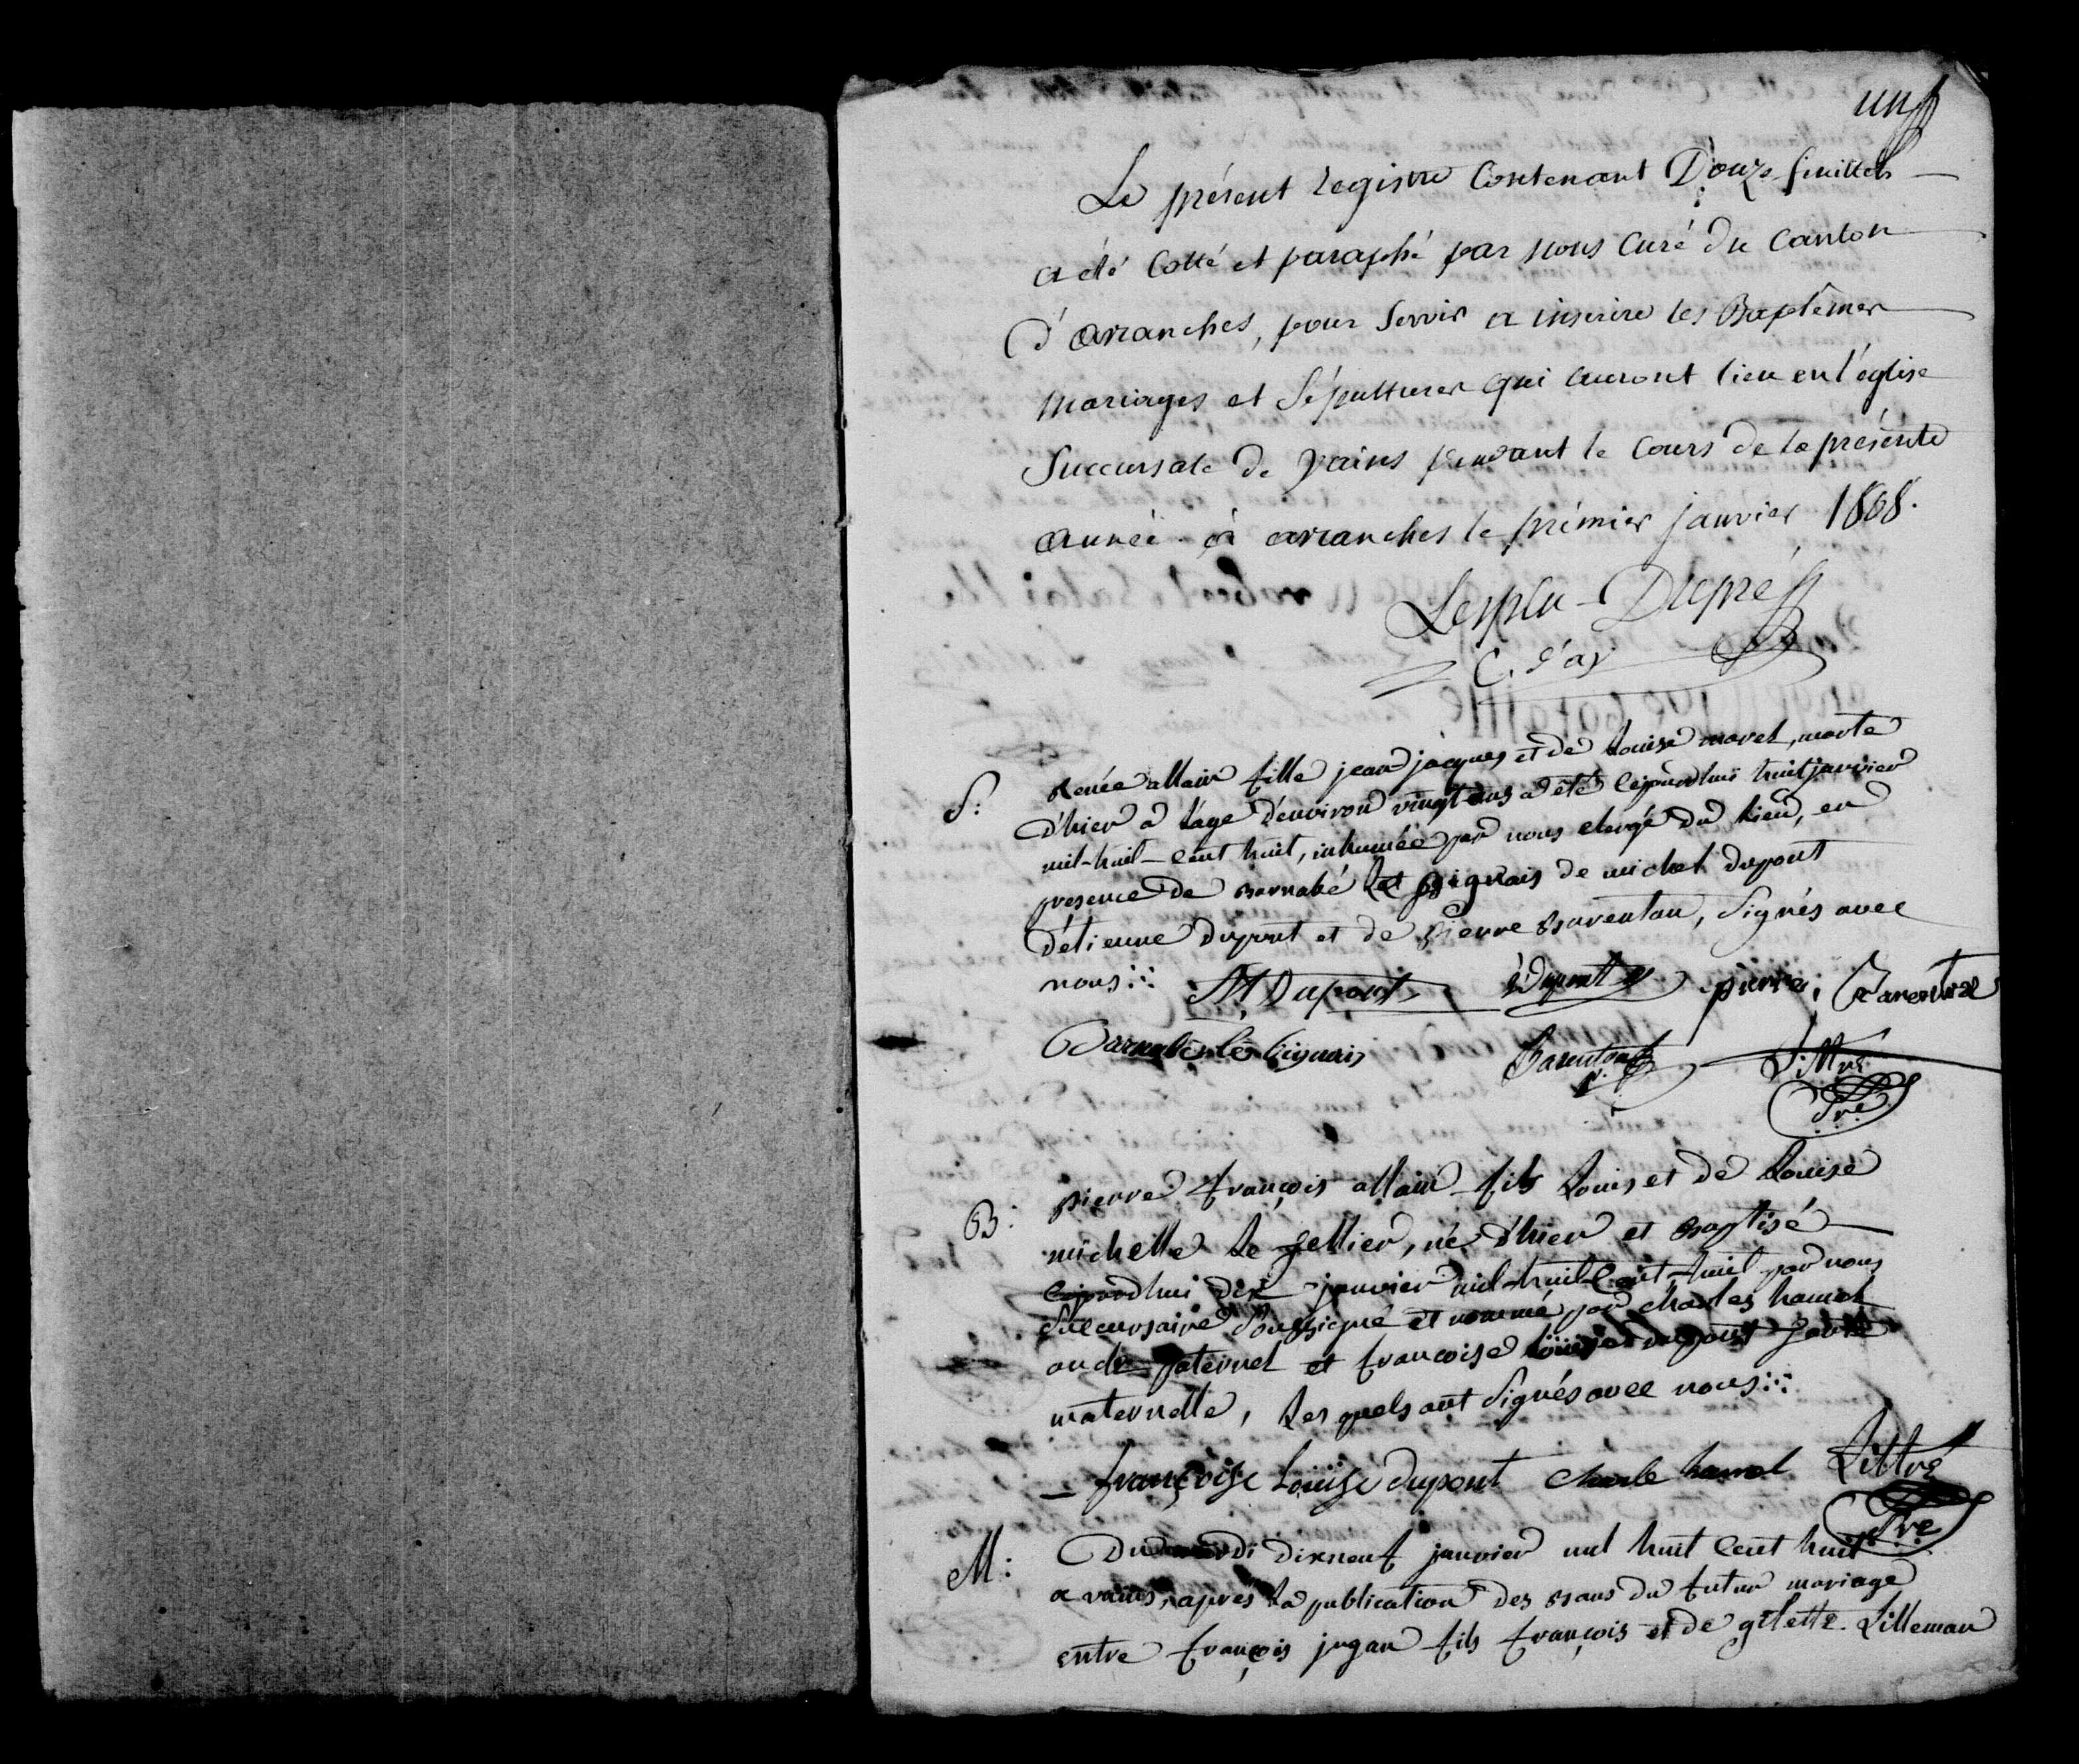 un
Le présent Registre Contenant Douze feuillets
a été Cotté et paraphé par nous Curé du Canton
d'avranches, pour Servir a inscrire les Baptêmes
Mariages et Sépultures qui auront lieu en l'église
Succursale de Vains pendant le Cours de la présente
année. à avranches le prémier janvier 1808.
Lesplu-Dupré
C. d'av
S: Renée allain fille jean jacques et de Louise morel, morte
d'hier a l'age d'environ vingt ans a été cejourdhui huit janvier
mil-huit-cent huit, inhumée par nous clergé du lieu, en
presence de Barnabé Le Bignais de michel dupont
d'étienne dupont et de pierre Barenton, Signés avec
nous
M Dupont E Dupont pierre Barenton
Barnabé le bignais Barenton Littré
Pre
B: pierre françois allain fils Louis et de Louise
michelle Le Tellier, né d'hier et Baptisé
cejourdhui dix janvier mil-huit Cent-huit par nous
Succursaire Soussigné et nommé par charles hamel
oncle paternel et francoise Louise dupont tante
maternelle, Lesquels ont Signés avec nous
françoise Louise dupont Charle hamel Littré
Pre
M: Du mardi dixneuf janvier mil huit Cent huit
a vains, aprés La publication des Bans du futur mariage
entre françois jugan fils françois et de gilette Lilleman